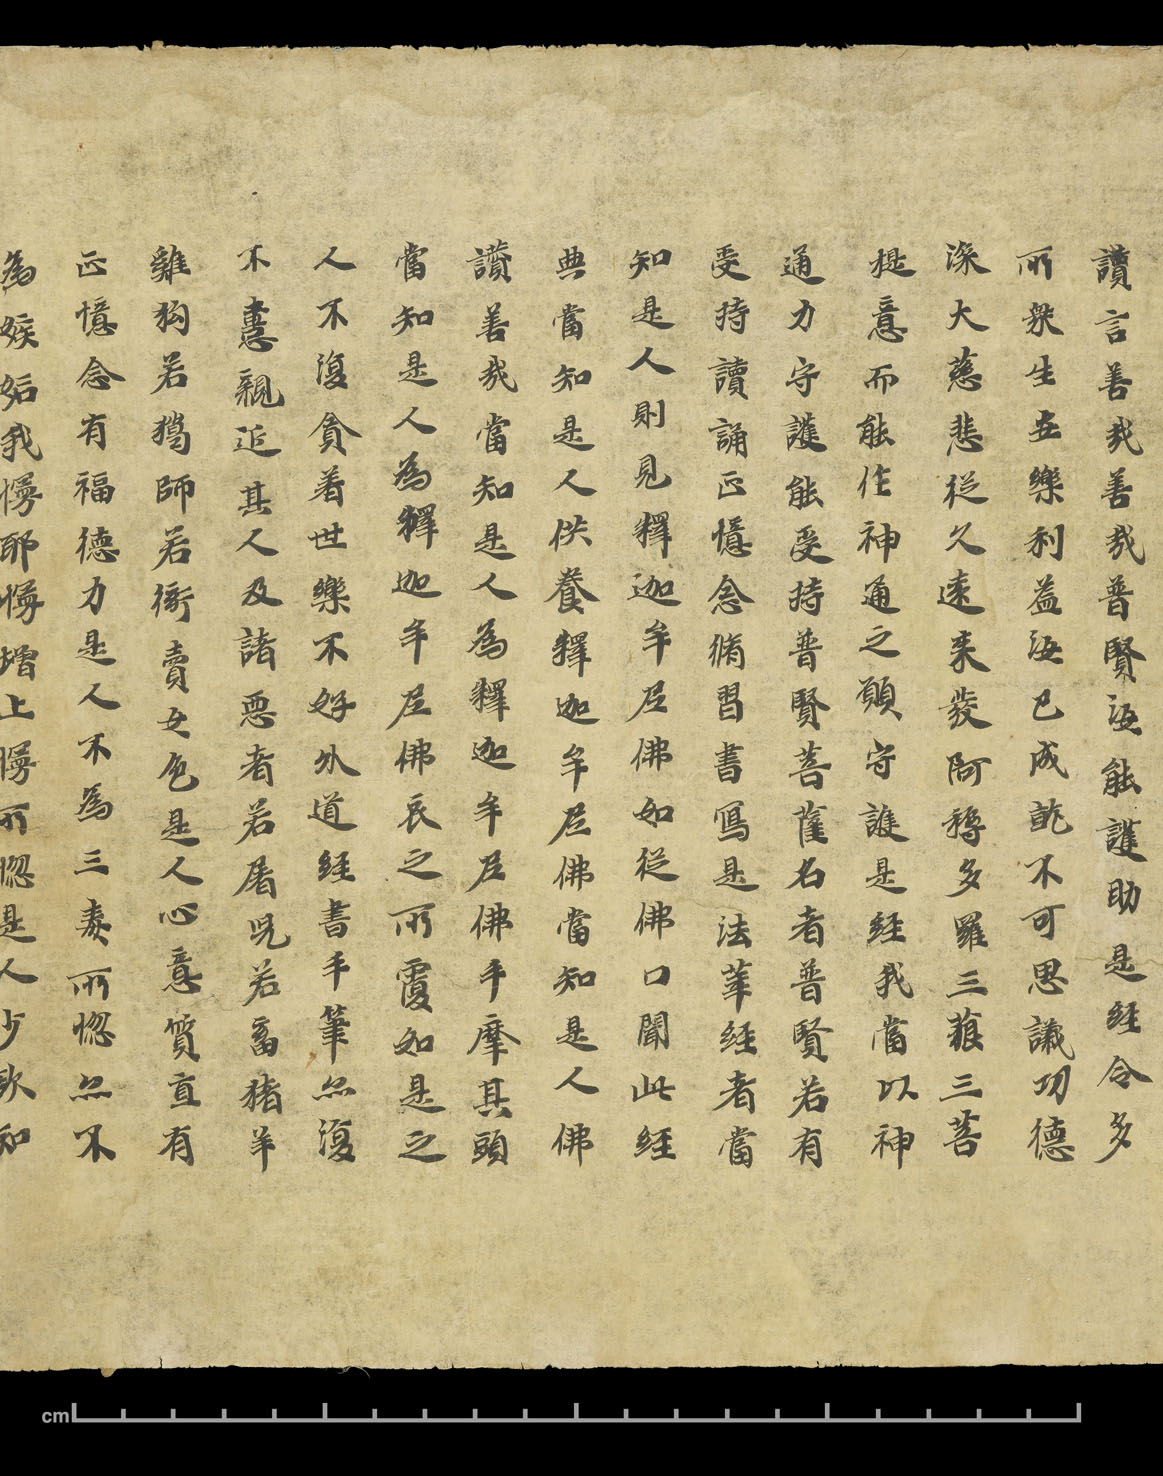 讚言善哉善哉普賢汝能護助是經令多
所衆生安樂利益汝已成就不可思議功德
深大慈悲從久遠來發阿耨多羅三藐三菩
提意而能作神通之願守護是經我當以神
通力守護能受持普賢菩薩名者普賢若有
受持讀誦正憶念脩習書寫是法華經者當
知是人則見釋迦牟尼佛如從佛口聞此經
典當知是人供養釋迦牟尼佛當知是人佛
讚善哉當知是人為釋迦牟尼佛手摩其頭
當知是人為釋迦牟尼佛衣之所覆如是之
人不復貪著世樂不好外道經書手筆亦復
不憙親近其人及諸惡者若屠兒若畜猪羊
雞狗若獦師若衒賣女色是人心意質直有
正憶念有福德力是人不為三毒所惱亦不
為嫉妬我慢耶慢增上慢所惱是人少欲知